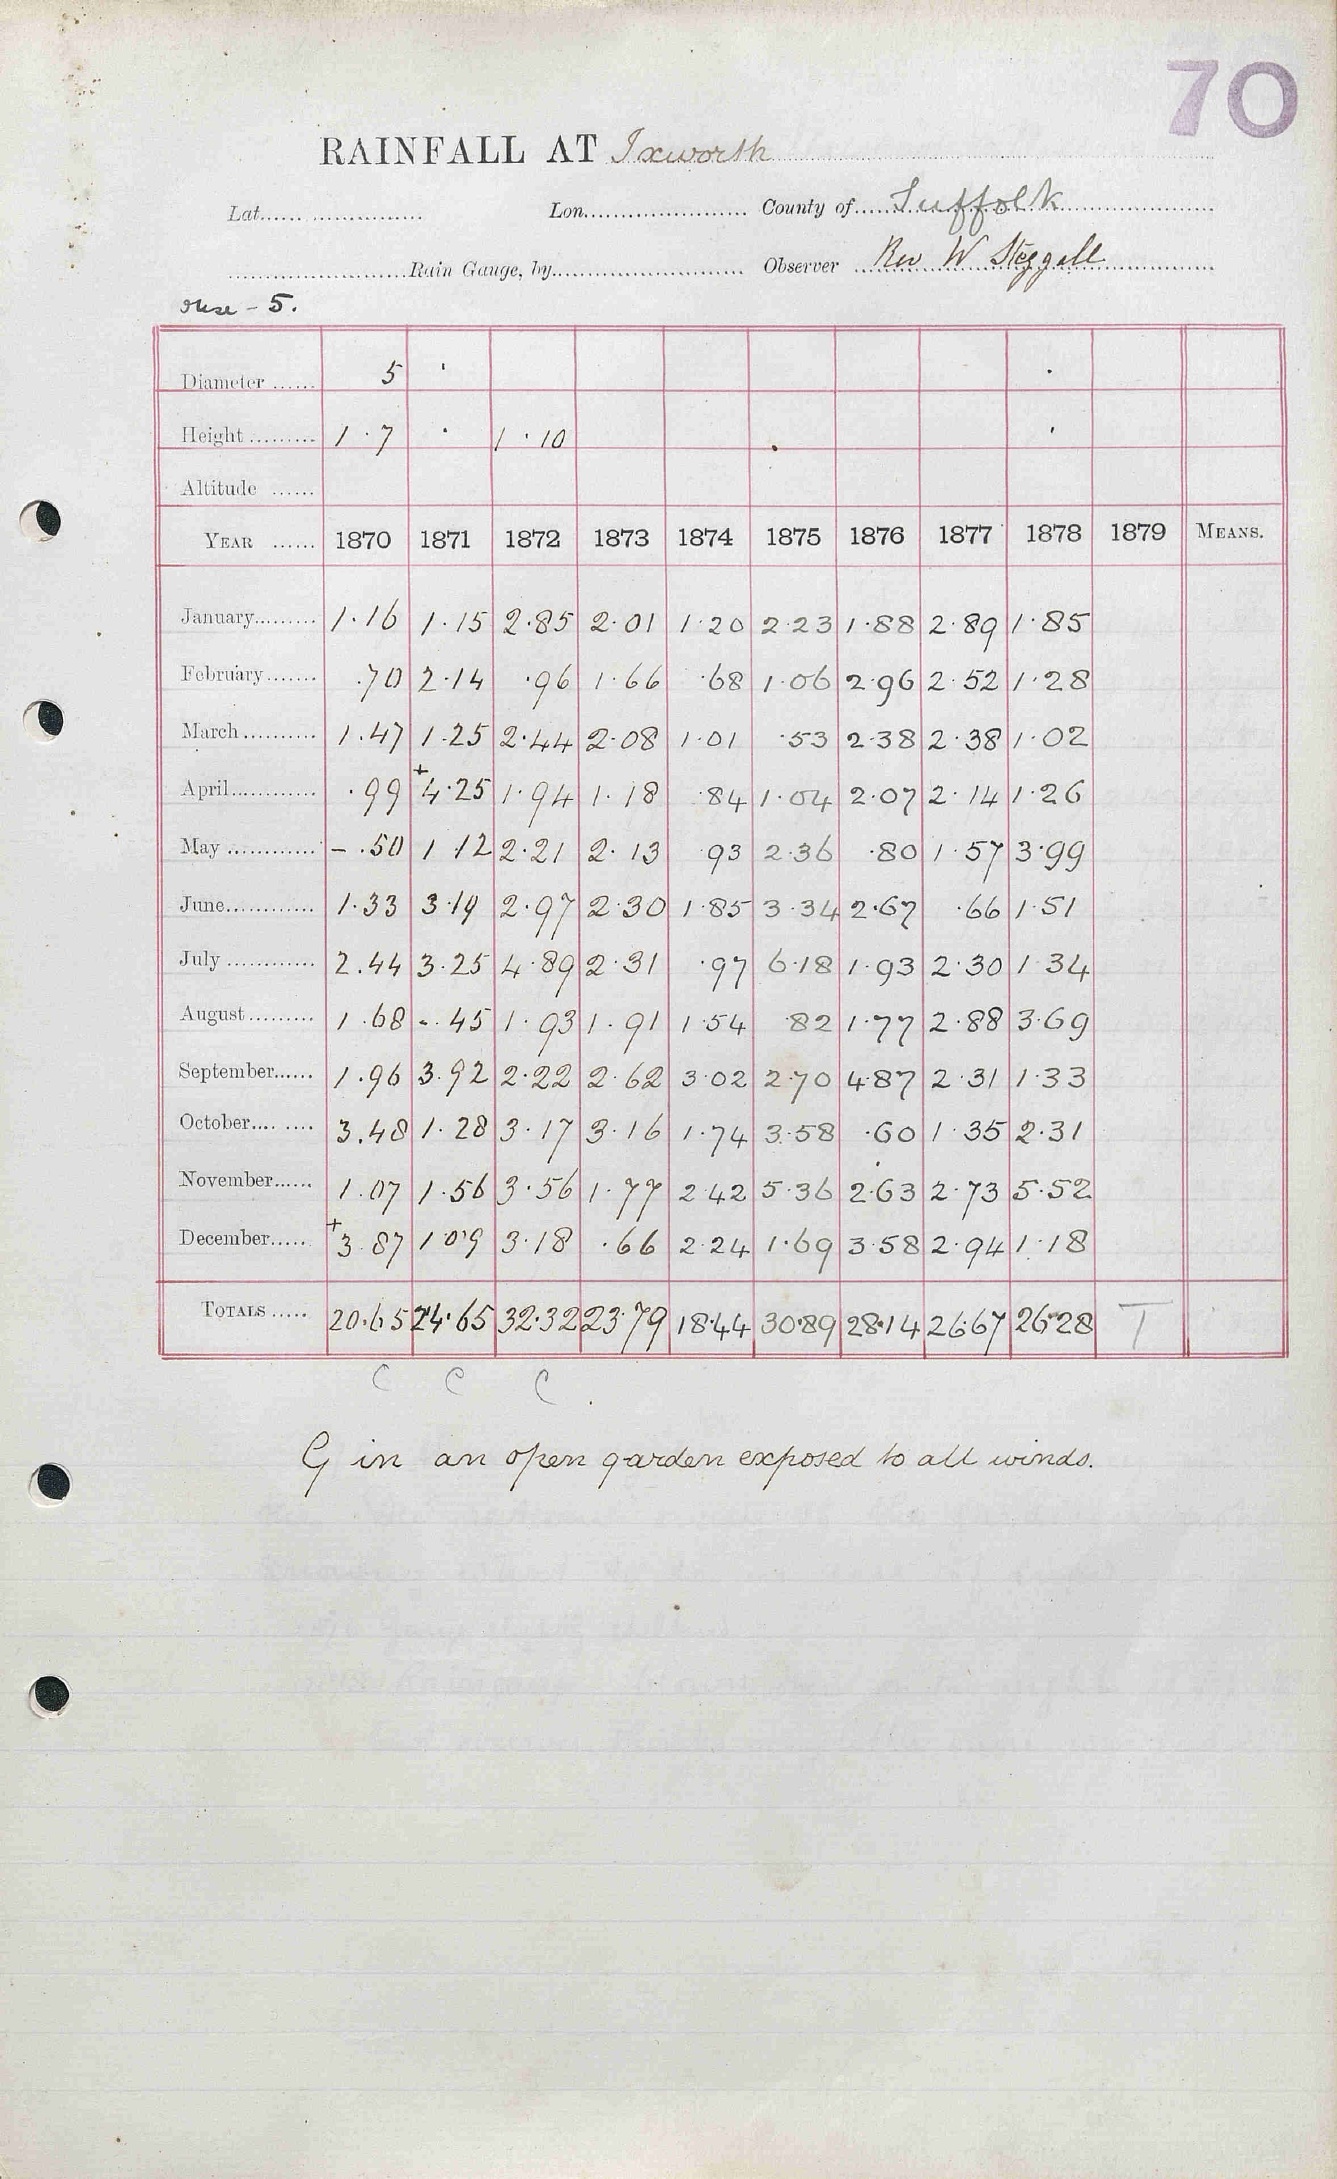 70
RAINFALL AT Ixworth
Lat. Lon. County of Suffolk
Rain Gauge, by Observer Rev W Steggall
Ouse - 5.
Diameter 5
Height 1 · 7 1 · 10
Altitude
YEAR 1870 1871 1872 1873 1874 1875 1876 1877 1878 1879 MEANS.
January 1.16 1.15 2.85 2.01 1.20 2.23 1.88 2.89 1.85
February .70 2.14 .96 1.66 .68 1.06 2.96 2.52 1.28
March 1.47 1.25 2.44 2.08 1.01 .53 2.38 2.38 1.02
April .99 +4.25 1.94 1.18 .84 1.04 2.07 2.14 1.26
May - .50 1.12 2.21 2.13 .93 2.36 .80 1.57 3.99
June 1.33 3.19 2.97 2.30 1.85 3.34 2.67 .66 1.51
July 2.44 3.25 4.89 2.31 .97 6.18 1.93 2.30 1.34
August 1.68 - .45 1.93 1.91 1.54 .82 1.77 2.88 3.69
September 1.96 3.92 2.22 2.62 3.02 2.70 4.87 2.31 1.33
October 3.48 1.28 3.17 3.16 1.74 3.58 .60 1.35 2.31
November 1.07 1.56 3.56 1.77 2.42 5.36 2.63 2.73 5.52
December +3.87 1.09 3.18 .66 2.24 1.69 3.58 2.94 1.18
TOTALS 20.65 24.65 32.32 23.79 18.44 30.89 28.14 26.67 26.28 T
C C C
G in an open garden exposed to all winds.